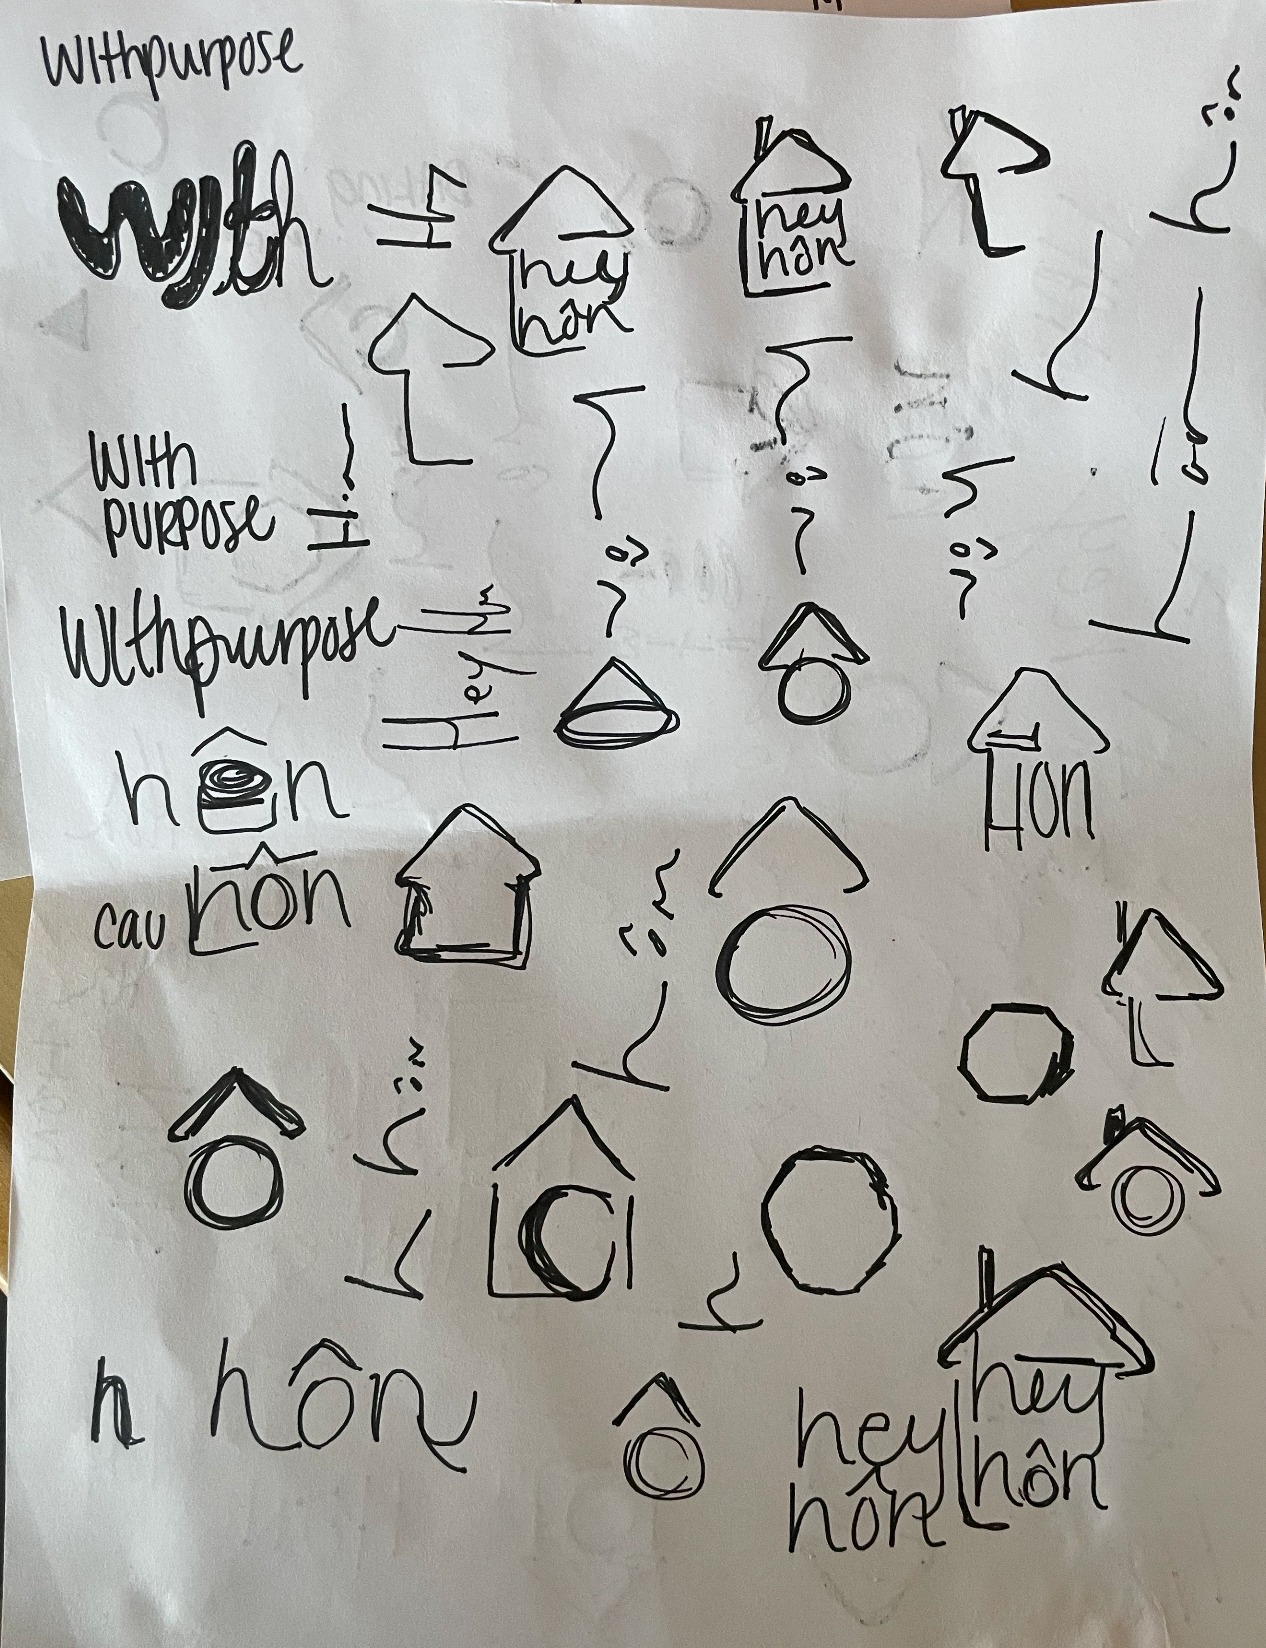 Withpurpose
with
hey
hôn
hey
hôn
With
purpose
Withpurpose
hôn
Hon
cau hôn
h hôn
hey
hôn
hey
hôn